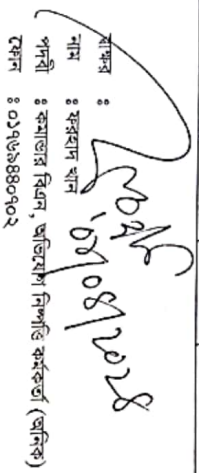 স্বাক্ষর :
নাম : ফরহাদ খান
পদবী : কমান্ডার বিএন, অভিযোগ নিষ্পত্তি কর্মকর্তা (অনিক)
ফোন : ০১৭৬৯৪৪০৭০২